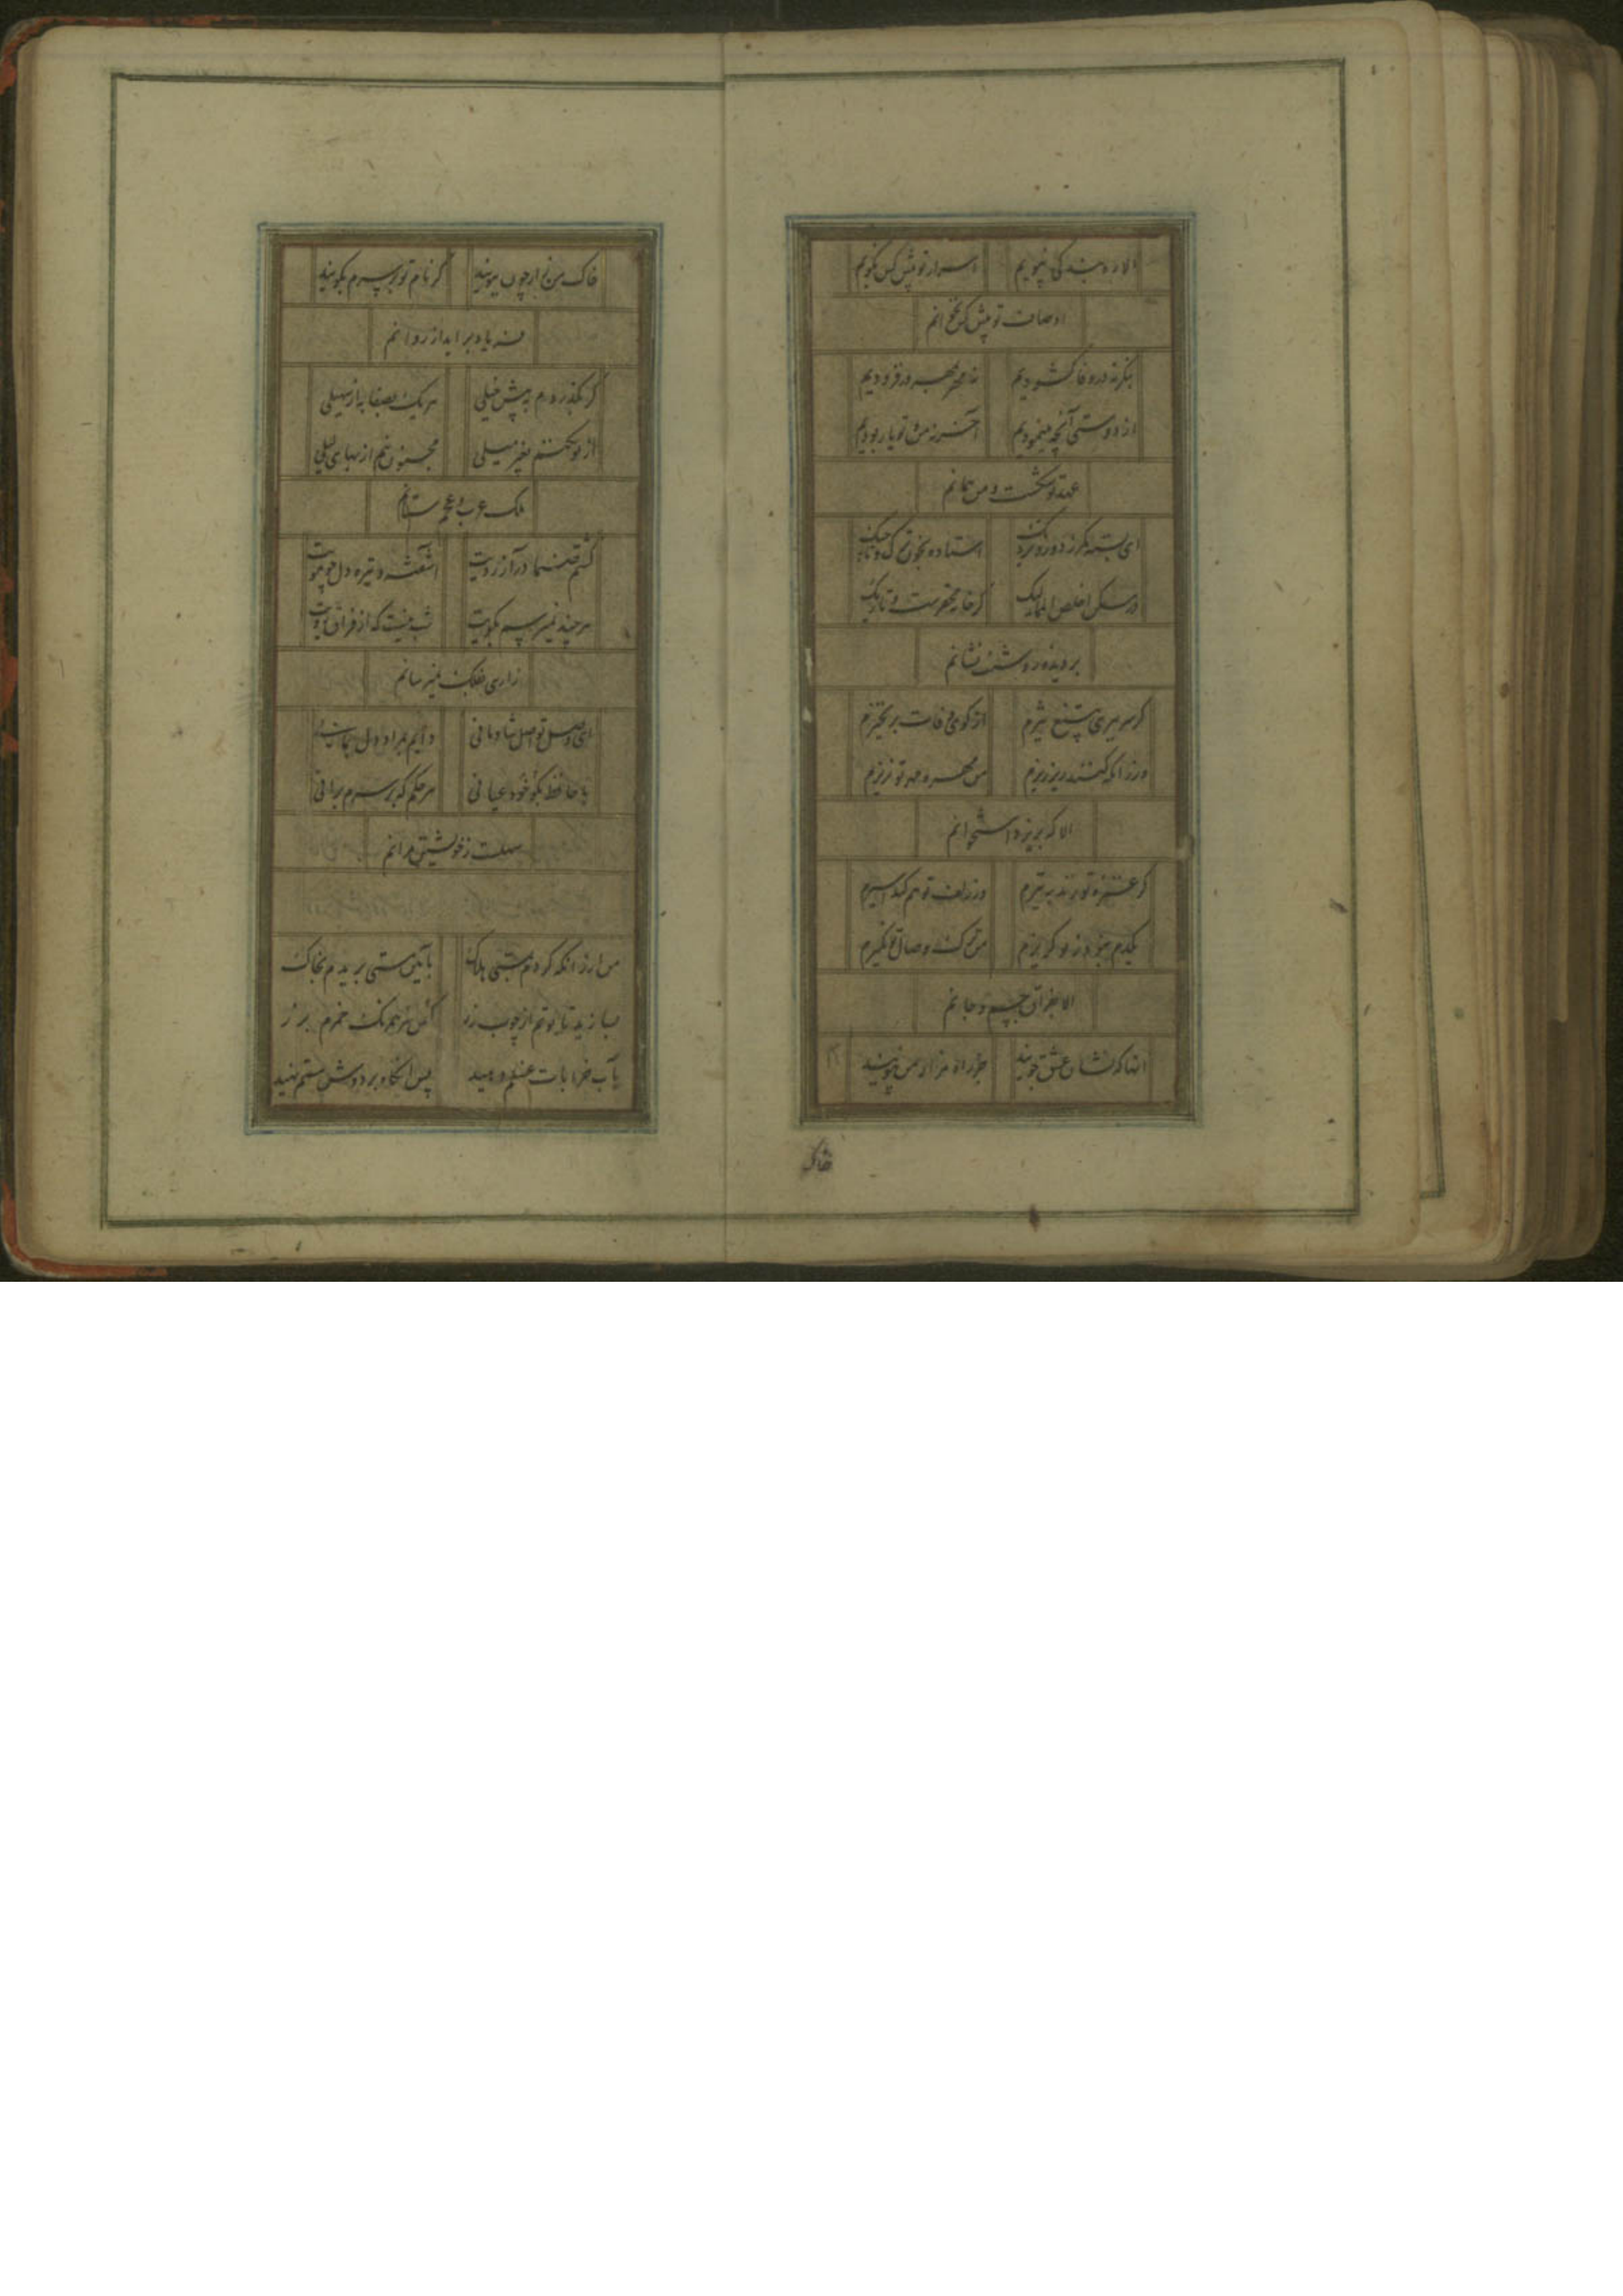 الا ره بندگی نپویم اسرار تو پیش کس نگویم
اوصاف تو پیش کس نخوانم
بنگر نه در وفا گشودیم نه مهر بمهر در فزودیم
از دوستی آنچه مینمودیم آخر نه من و تو یار بودیم
عهد تو شکست و من همانم
ای بسته کمر ز دور و نزدیک استاده بخون ترک و تاجیک
در مسکن اخلص الممالیک گر خانه محقرست و تاریک
بر دیده روشنت نشانم
گر سر ببری بتیغ تیزم از کوی وفات برنخیزم
ورزانکه کنند ریز ریزم من مهره مهر تو نریزم
الا که بریزد استخوانم
گر غمزه تو زند به تیرم ور زلف تو هم کند اسیرم
یکدم نبود ز تو گزیرم من ترک وصال تو نگیرم
الا بفراق جسم و جانم
آنها که نشان عشق جویند جز راه مزار من نپویند
خاک
خاک من زار چون ببویند گر نام تو بر سرم بگویند
فریاد برآید از روانم
گر بگذردم به پیش خیلی هر یک بصفا به از سهیلی
از تو نکنم بغیر میلی مجنون نیم ار بهای لیلی
ملک عرب و عجم ستانم
گشتم صنما در آرزویت آشفته و تیره دل چو مویت
هر چند نمیرسم بکویت شب نیست که از فراق رویت
زاری بفلک نمیرسانم
ای وصل تو اصل شادمانی دایم بمراد دل بمانی
با حافظ بگو خود عیانی هر حکم که بر سرم برانی
سهلست ز خویشتن مرانم
من ار زانکه گردم بمستی هلاک بآیین مستی بریدم بخاک
بسازید تابوتم از چوب رز
بآب خرابات غسلم دهید پس آنگاه بر دوش مستم نهید